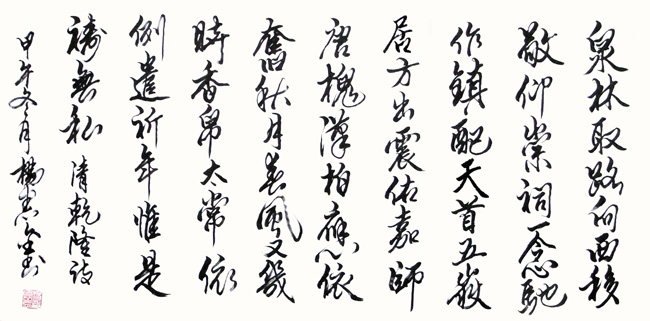 泉林取路向西移
敬仰崇祠一念馳
作鎮配天首五嶽
居方出震佑嘉師
唐槐漢柏應依
舊秋月春風又幾
時香帛太常依
例遣祈年惟是
禱無私 清乾隆詩
甲午冬月楊書